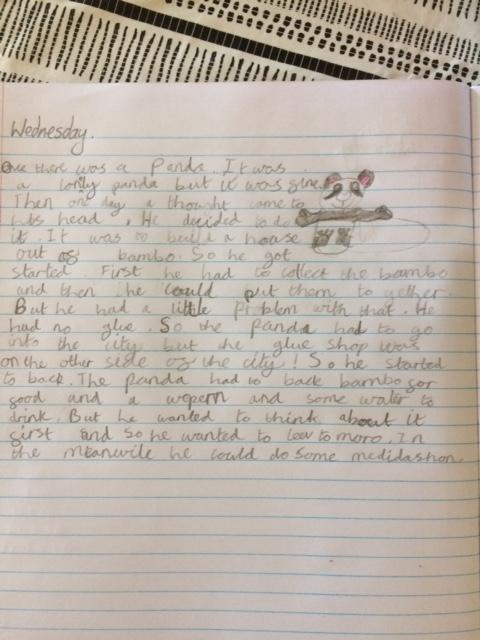 Wednesday.
Once there was a Panda. It was
a lonly panda but it was fine.
Then one day a thought came to
his head, He decided to do
it. It was to build a house
out of bambo. So he got
started. First he had to collect the bambo
and then he could put them to gether.
But he had a little problem with that. He
had no glue. So the panda had to go
into the city but the glue shop was
on the other side of the city! So he started
to back. The panda had to back bambo for
food and a wepern and some water to
drink. But he wanted to think about it
first and so he wanted to to moro. In
the meanwile he could do some medidashon.